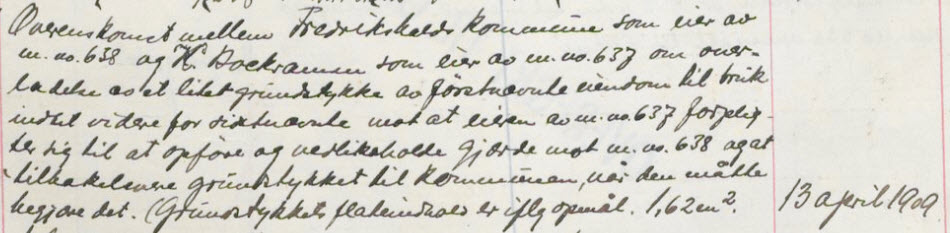 Overenskomst mellem Fredrikshalds kommune som eier av
m. no. 638 og K. Bockraman som eier av m. no. 637 om over-
ladelse av et litet grundstykke av förstnævnte eiendom til bruk
indtil videre for sistnævnte mot at eieren av m. no. 637 forplig-
ter sig til at opföre og vedlikeholde gjærde mot m. no. 638 og at
tilbakelevere grundstykket til kommunen, når den måtte
begjære det. (Grundstykkets flateindhold er iflg opmål. 1,62 m². 13 april 1909